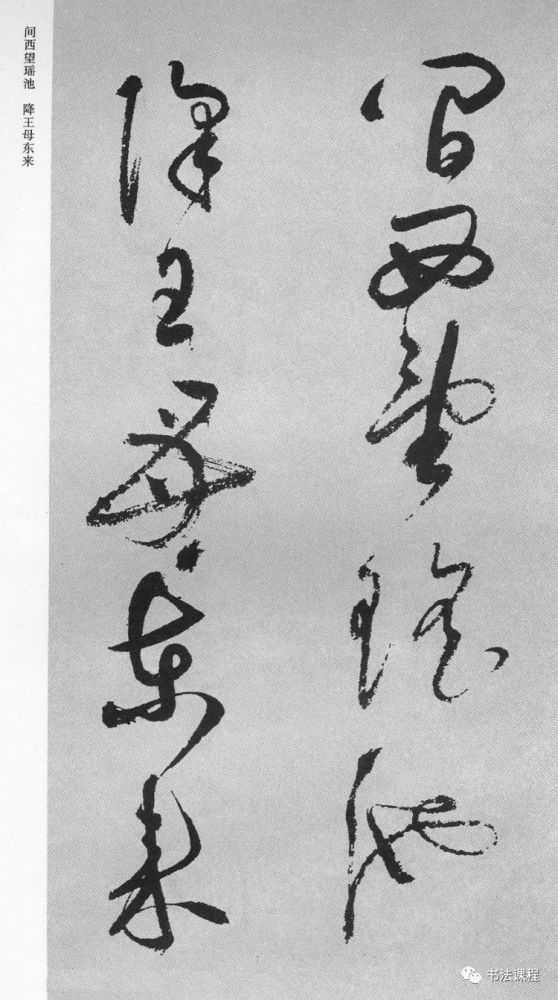 间西望瑶池
降王母东来
间西望瑶池 降王母东来
书法课程